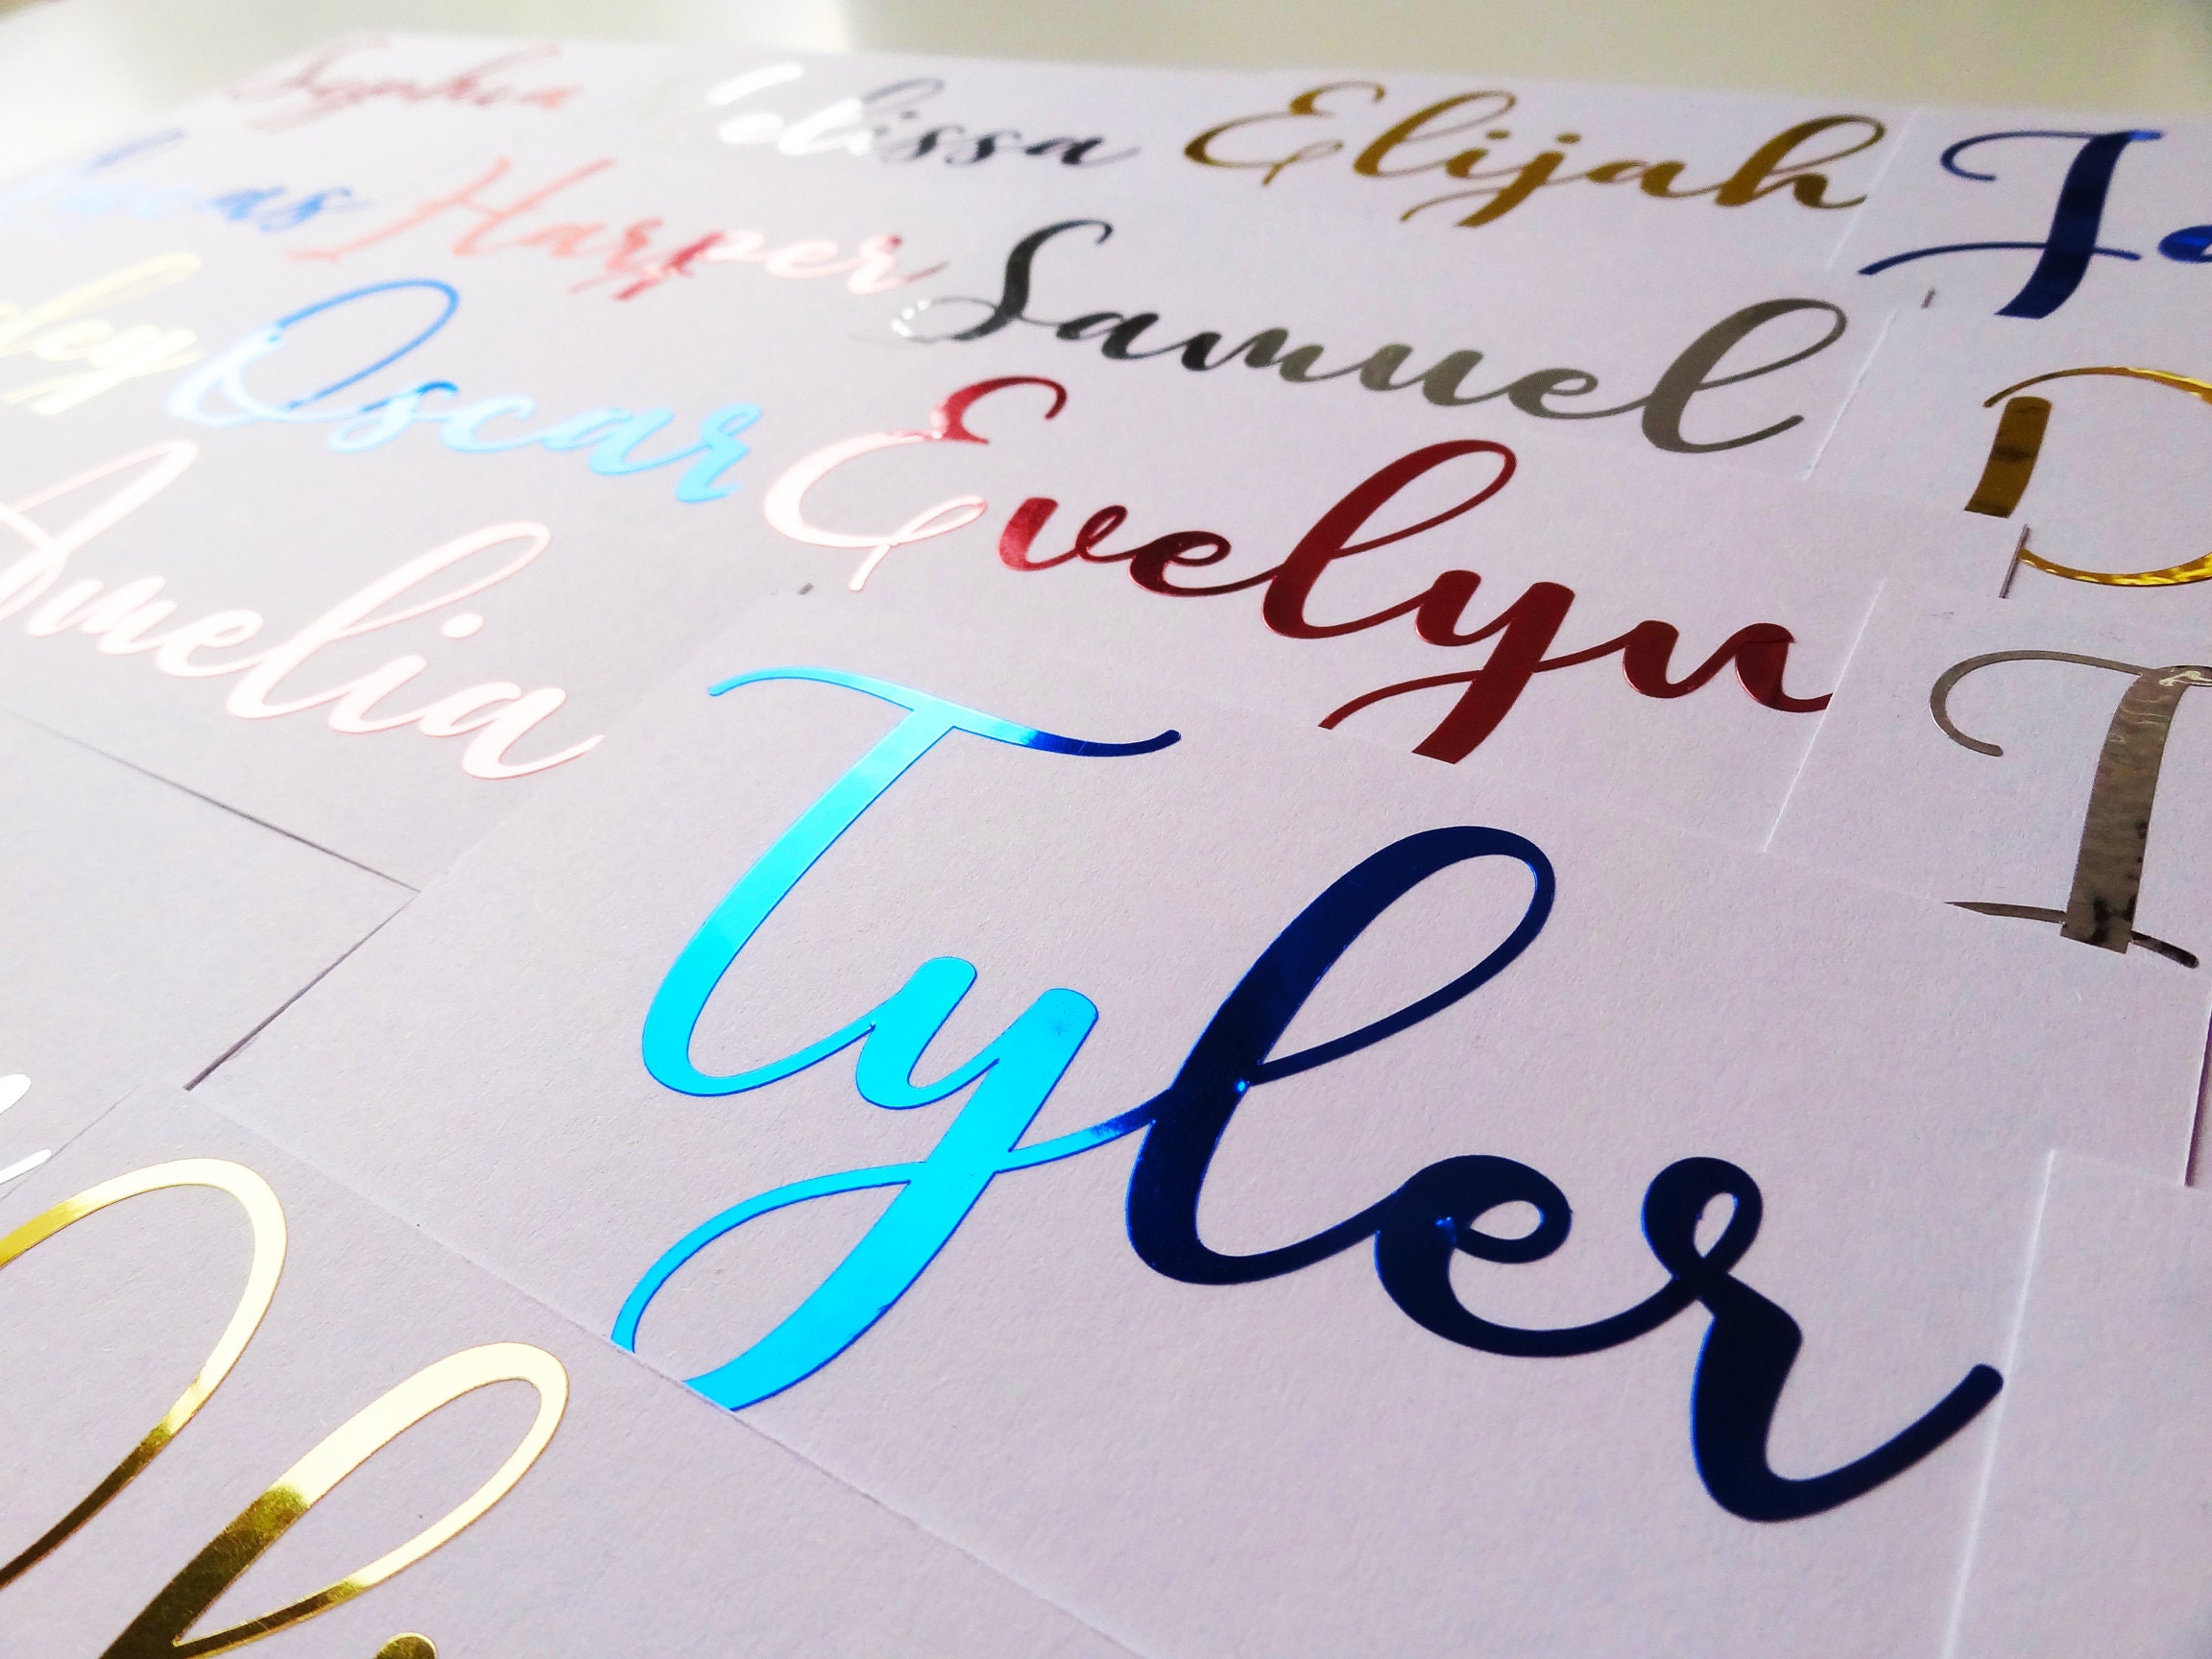 Sophia
Elijah
Lucas Harper
Samuel
Oscar
Evelyn
Amelia
Tyler